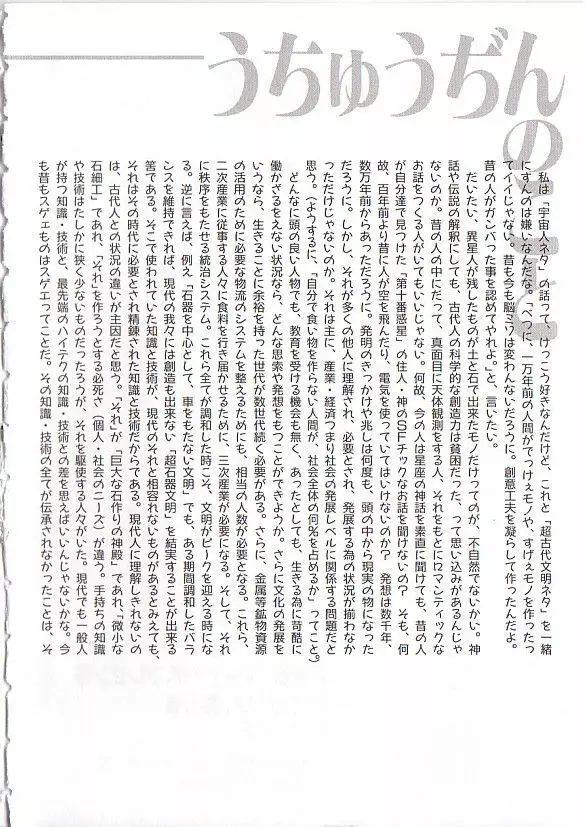 うちゅうぢんの
私は「宇宙人ネタ」の話って、けっこう好きなんだけど、これと「超古代文明ネタ」を一緒
にすんのは嫌いなんだな。「べつに、一万年前の人間がでっけェモノや、すげェモノを作ったっ
てイイじゃない。昔も今も脳ミソは変わんないだろうに。創意工夫を凝らして作ったんだよ。
昔の人がガンバった事を認めてやれよ。」と、言いたい。
だいたい、異星人が残したものが土と石で出来たモノだけってのが、不自然でないかい。神
話や伝説の解釈にしても、古代人の科学的な創造力は貧困だった、って思い込みがあるんじゃ
ないのか。昔の人の中にだって、真面目に天体観測をする人、それをもとにロマンティックな
お話をつくる人がいてもいいじゃない。何故、今の人は星座の神話を素直に聞けても、昔の人
が自分達で見つけた「第十番惑星」の住人・神のSFチックなお話を聞けないの？ そも、何
故、百年前より昔に人が空を飛んだり、電気を使っていてはいけないのか？ 発想は数千年、
数万年前からあっただろうに。発明のきっかけや兆しは何度も、頭の中から現実の物になった
だろうに。しかし、それが多くの他人に理解され、必要とされ、発展する為の状況が揃わなか
っただけじゃないのか。それは主に、産業・経済つまり社会の発展レベルに関係する問題だと
思う。（ようするに、「自分で食い物を作らない人間が、社会全体の何％を占めるか」ってこと。）
どんなに頭の良い人物でも、教育を受ける機会も無く、あったとしても、生きる為に苛酷に
働かざるをえない状況なら、どんな思索や発想をもつことができようか。さらに文化の発展を
いうなら、生きることに余裕を持った世代が数世代続く必要がある。さらに、金属等鉱物資源
の活用のために必要な物流のシステムを整えるためにも、相当の人数が必要となる。これら、
二次産業に従事する人々に食料を行き届かせるために、三次産業が必要になる。そして、それ
に秩序をもたせる統治システム。これら全てが調和した時こそ、文明がピークを迎える時にな
る。逆に言えば、例え「石器を中心として、車をもたない文明」でも、ある期間調和したバラ
ンスを維持できれば、現代の我々には創造も出来ない「超石器文明」を結実することが出来る
筈である。そこで使われていた知識と技術が、現代のそれと相容れないものがあるとみえても、
それはその時代に必要とされ精錬された知識と技術だからである。現代人に理解しきれないの
は、古代人との状況の違いが主因だと思う。「それ」が「巨大な石作りの神殿」であれ、「微小な
石細工」であれ、「それ」を作ろうとする必死さ（個人・社会のニーズ）が違う。手持ちの知識
や技術はたしかに狭く少ないものだったろうが、それを駆使する人々がいた。現代でも一般人
が持つ知識・技術と、最先端のハイテクの知識・技術との差を思えばいいんじゃないかな。今
も昔もスゲェものはスゲエってことだ。その知識・技術の全てが伝承されなかったことは、そ